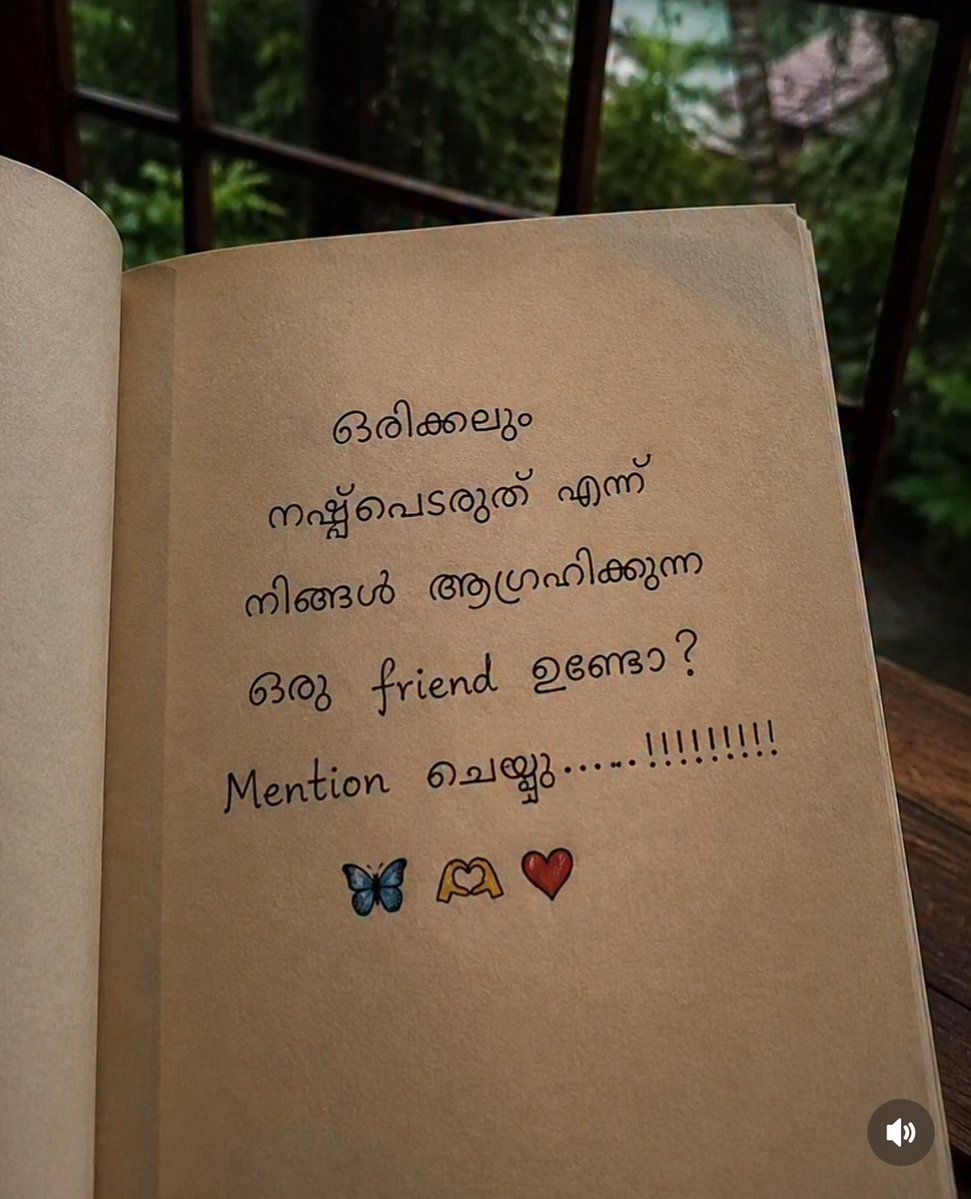 ഒരിക്കലും
നഷ്ട്പെടരുത് എന്ന്
നിങ്ങൾ ആഗ്രഹിക്കുന്ന
ഒരു friend ഉണ്ടോ?
Mention ചെയ്യു......!!!!!!!!!
🦋 🫶 ❤️